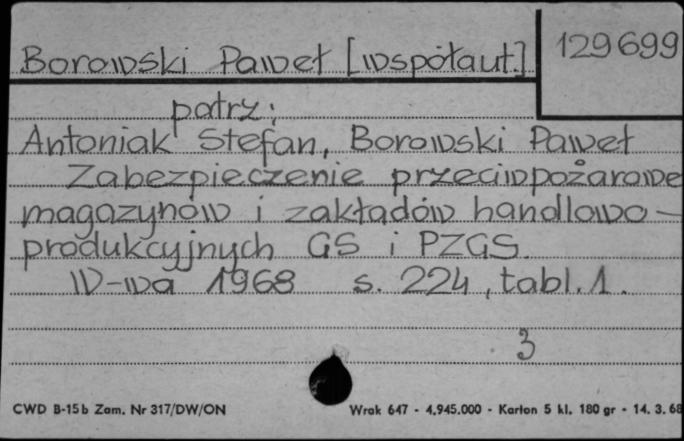 Borowski Paweł [współaut.]
129699
patrz:
Antoniak Stefan, Borowski Paweł
Zabezpieczenie przeciwpożarowe
magazynów i zakładów handlowo-
produkcyjnych GS i PZGS.
W-wa 1968 s. 224, tabl. 1.
3
CWD B-15b Zam. Nr 317/DW/ON
Wrak 647 - 4.945.000 - Karton 5 kl. 180 gr - 14. 3. 68